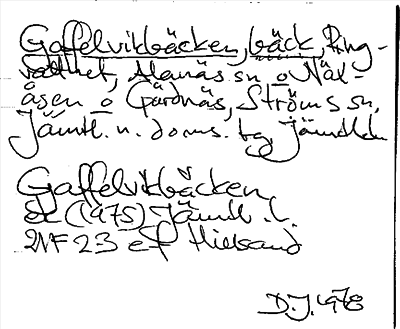 Gaffelvikbäcken, bäck, Ring-
vattnet, Alanäs sn o Näs-
åsen o Gärdnäs, Ströms sn,
Jämtl. n. doms. tg, Jämtl.
Gaffelvikbäcken
ek (1975) Jämtl l.
22F 23 ef
D.J. 1978